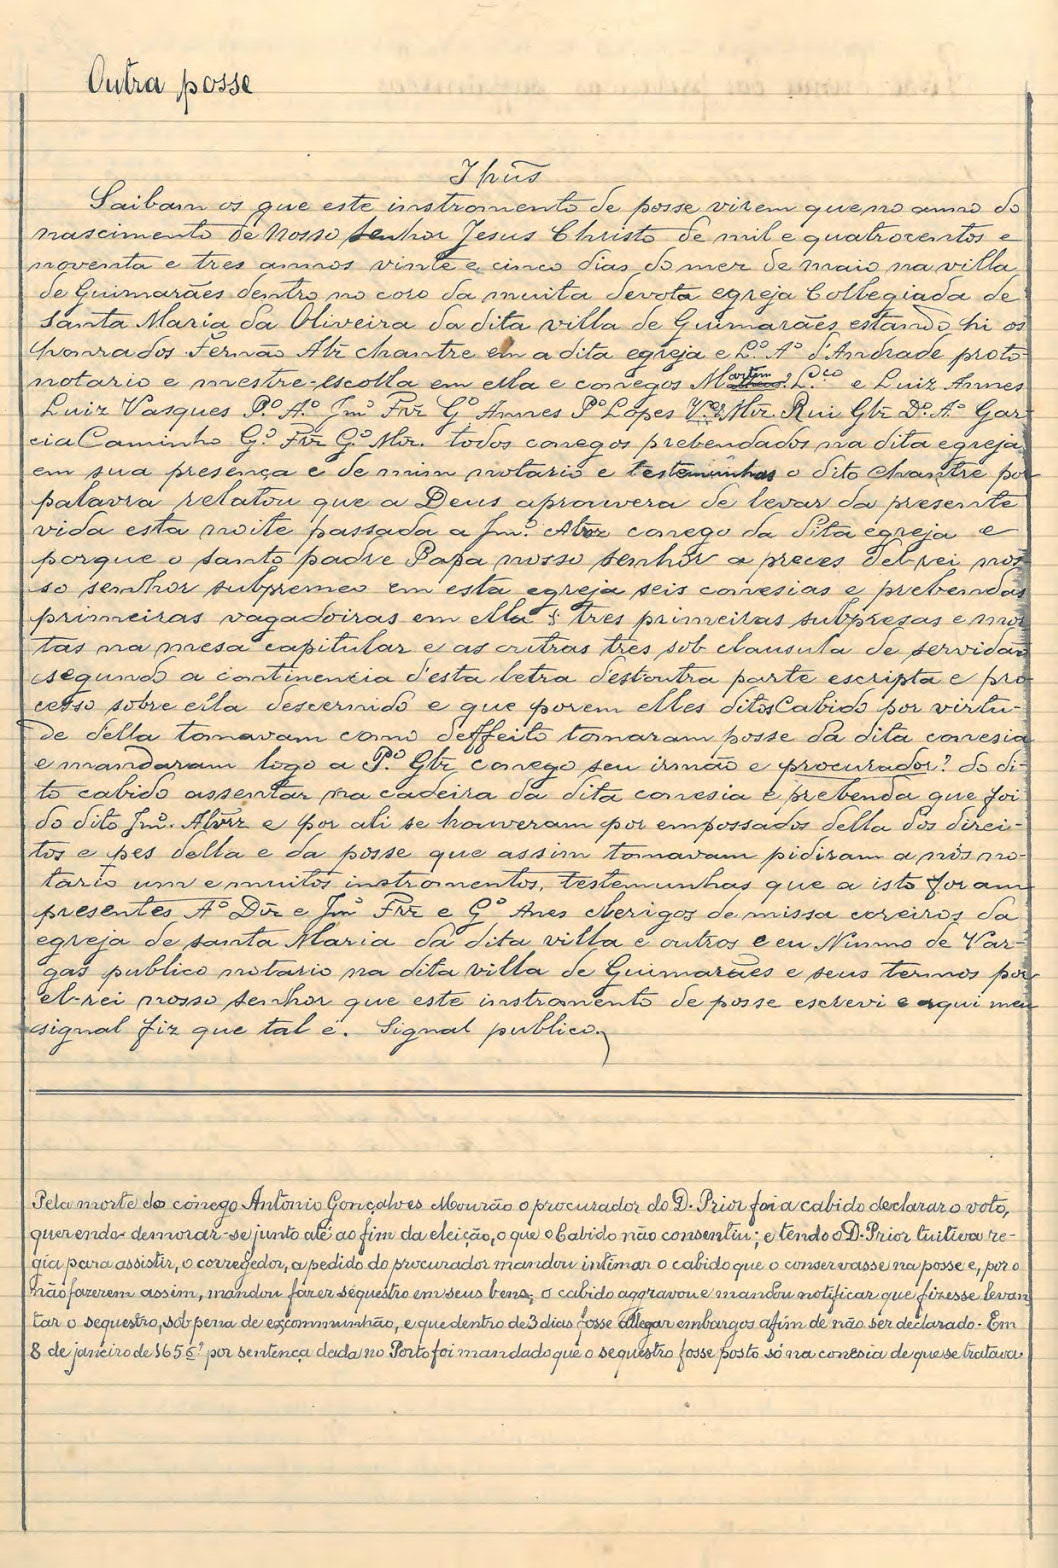 Outra posse
Ihũs
Saibam os que este instromento de posse virem que no anno do
nascimento de Nosso Senhor Jesus Christo de mil e quatrocentos e
noventa e tres annos vinte e cinco dias do mez de maio na villa
de Guimarães dentro no coro da muita devota egreja Collegiada de
Santa Maria da Oliveira da dita villa de Guimarães estando hi os
honrados Fernão Alz̃ chantre em a dita egreja e L.º A.º d'Andrade proto-
notario e mestre-escolla em ella e conegos Martim L.ço e Luiz Annes
Luiz Vasques P.º A.º Jm.º Frz̃ G.º Annes P.º Lopes Mz̃. Rui Glz̃ D.º A.º Gar-
cia Caminho G.º Frz̃ G.º Mz̃. todos conegos prebendados na dita egreja
em sua presença e de mim notario e testemunhas o dito chantre por
palavra relatou que a Deus aprouvera de levar da presente
vida esta noite passada a Jm.º Alvz̃ conego da dita egreja e
porque o santo padre Papa nosso senhor a preces del-rei nos-
so senhor subpremeo em esta egreja seis conesias e prebendas
primeiras vagadoiras em ella § tres primeiras subpresas e mor-
tas na mesa capitular e as outras tres sob clausula de servidão
segundo a continencia d'esta letra dest'outra parte escripta e pro-
cesso sobre ella descernido e que porem elles ditos Cabido por virtu-
de della tomavam como d'effeito tomaram posse da dita conesia
e mandaram logo a P.º Glz̃ conego seu irmão e procurador? do di-
to cabido assentar na cadeira da dita conesia e prebenda que foi
do dito Jm.º Alvz̃ e por ali se houveram por empossados della dos direi-
tos e pes della e da posse que assim tomavam pidiram a nós no-
tario um e muitos instromentos, testemunhas que a isto foram
presentes A.º Dz̃ e Jm.º Frz̃ e G.º Anes clerigos de missa coreiros da
egreja de santa Maria da dita villa e outros e eu Nunno de Var-
gas publico notario na dita villa de Guimarães e seus termos por
el-rei nosso senhor que este instromento de posse escrevi e aqui meu
signal fiz que tal é. Signal publico.
Pela morte do cónego Antonio Gonçalves Mourão o procurador do D. Prior foi a cabido declarar o voto,
querendo demorar-se junto até ao fim da eleição, o que o Cabido não consentiu; e tendo o D. Prior tuitiva re-
gia para assistir, o corregedor, a pedido do procurador mandou intimar o cabido que o conservasse na posse e, por o
não fazerem assim, mandou fazer sequestro em seus bens; o cabido aggravou e mandou notificar que fizesse levan-
tar o sequestro, sob pena de excommunhão, e que dentro de 3 dias fosse allegar embargos afim de não ser declarado. Em
8 de janeiro de 1656? por sentença dada no Porto foi mandado que o sequestro fosse posto só na conesia de que se tratava.